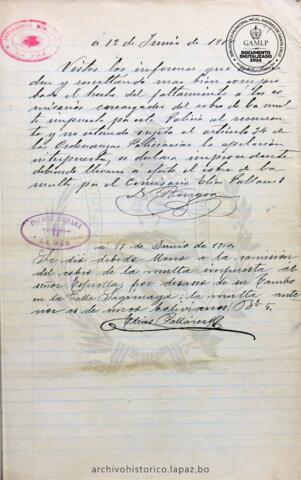 á 12 de Junio de 191
Vistos los informes que
den y resultando mas bien com pro
bado el hecho del faltamiento á los co
misarios encargados del cobro de la mul
ta impuesta por esta Policia al recurren
te, y no estando sujeto al articulo 34 de
las Ordenanzas Policiarias la apelación
interpuesta, se declara improcedente
debiendo llevarse a efecto el cobro de la
multa por el Comisario Elias Pallares
POLICIA URBANA
LA PAZ
á 17 de Junio de 191
Se dió debido lleno a la comision
del cobro de la multa impuesta al
señor Espirilla, por desaseo de su Tambo
en la Calle Sagarnaga; la multa ante
rior es de cinco bolivianos Bs 5,
Elias Pallares
GAMLP
DOCUMENTO
DIGITALIZADO
2024
archivohistorico.lapaz.bo